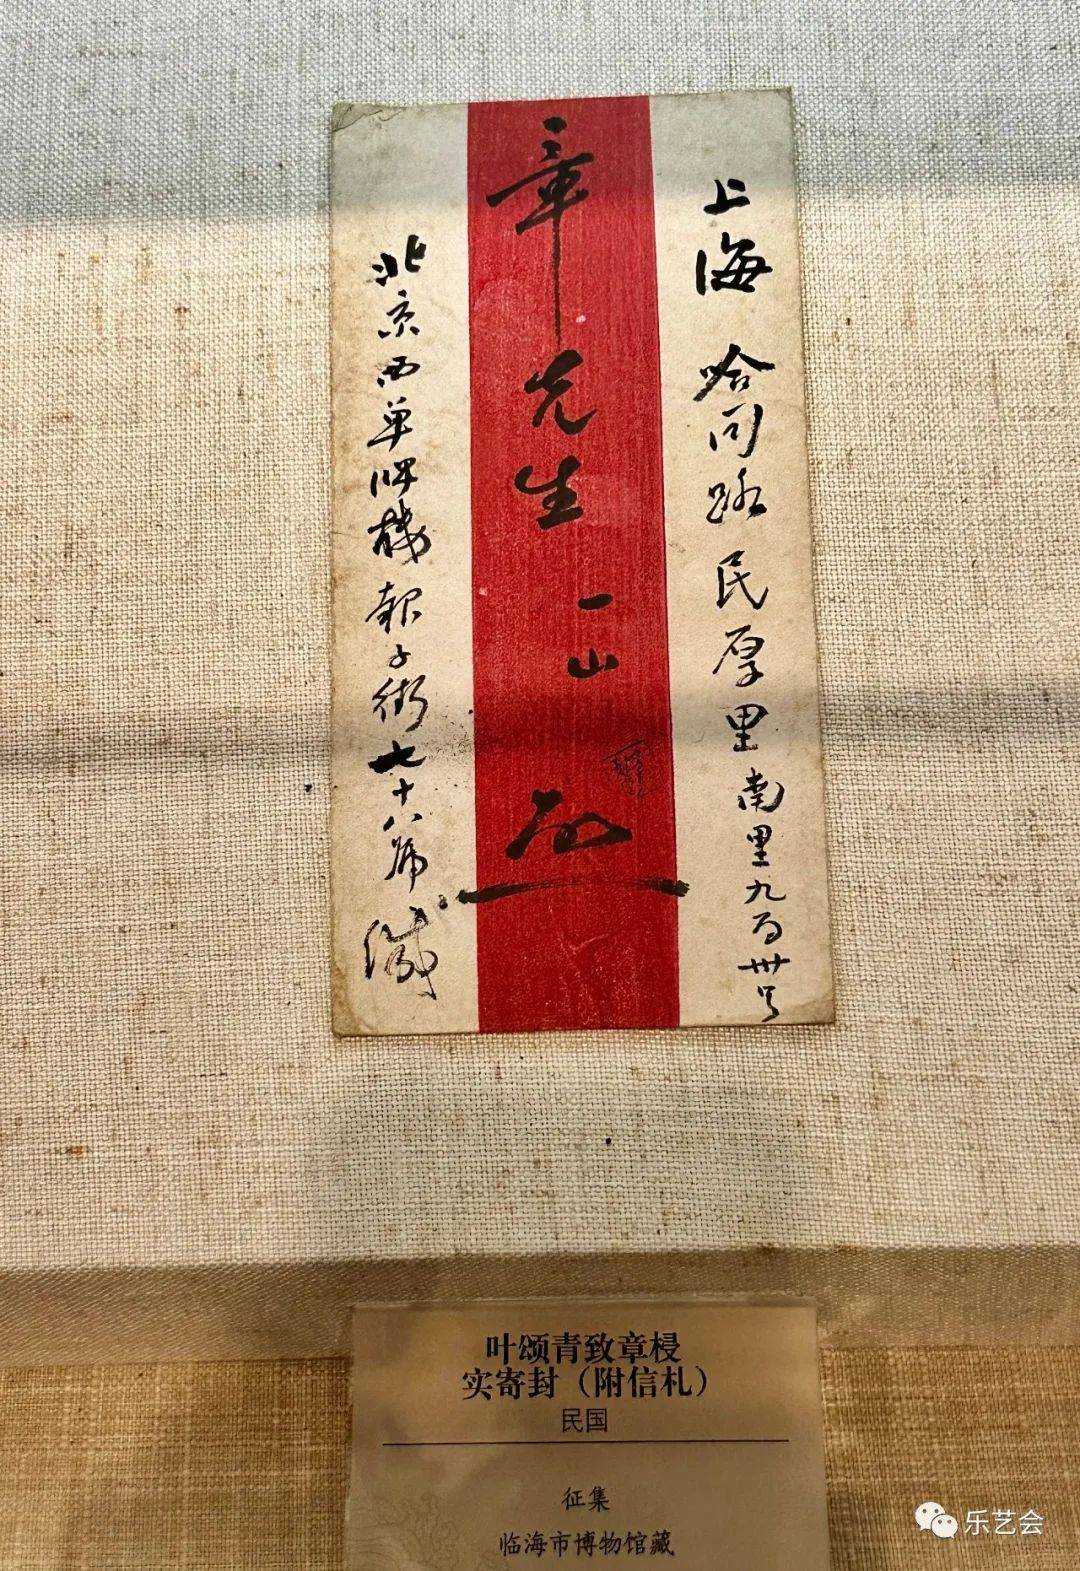 上海 哈同路 民厚里南里九百卅号
章先生 一山
北京西单牌楼報子街七十八號 缄
叶颂青致章梫
实寄封（附信札）
民国
征集
临海市博物馆藏
乐艺会